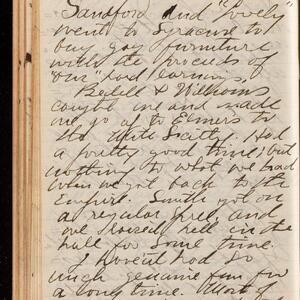 Sandford and "Lovely"
went to Syracuse to
buy gay furniture
with the proceeds of
"our" hard earnings.
Bedell & Williams
caught me and made
me go up to Elmers to
the Society. Had
a pretty good time; but
nothing to what we had
when we got back to the
Empire. Smith got on
a regular spree, and
we raised hell in the
hall for some time.
I haven't had so
much genuine fun for
a long time. Most of